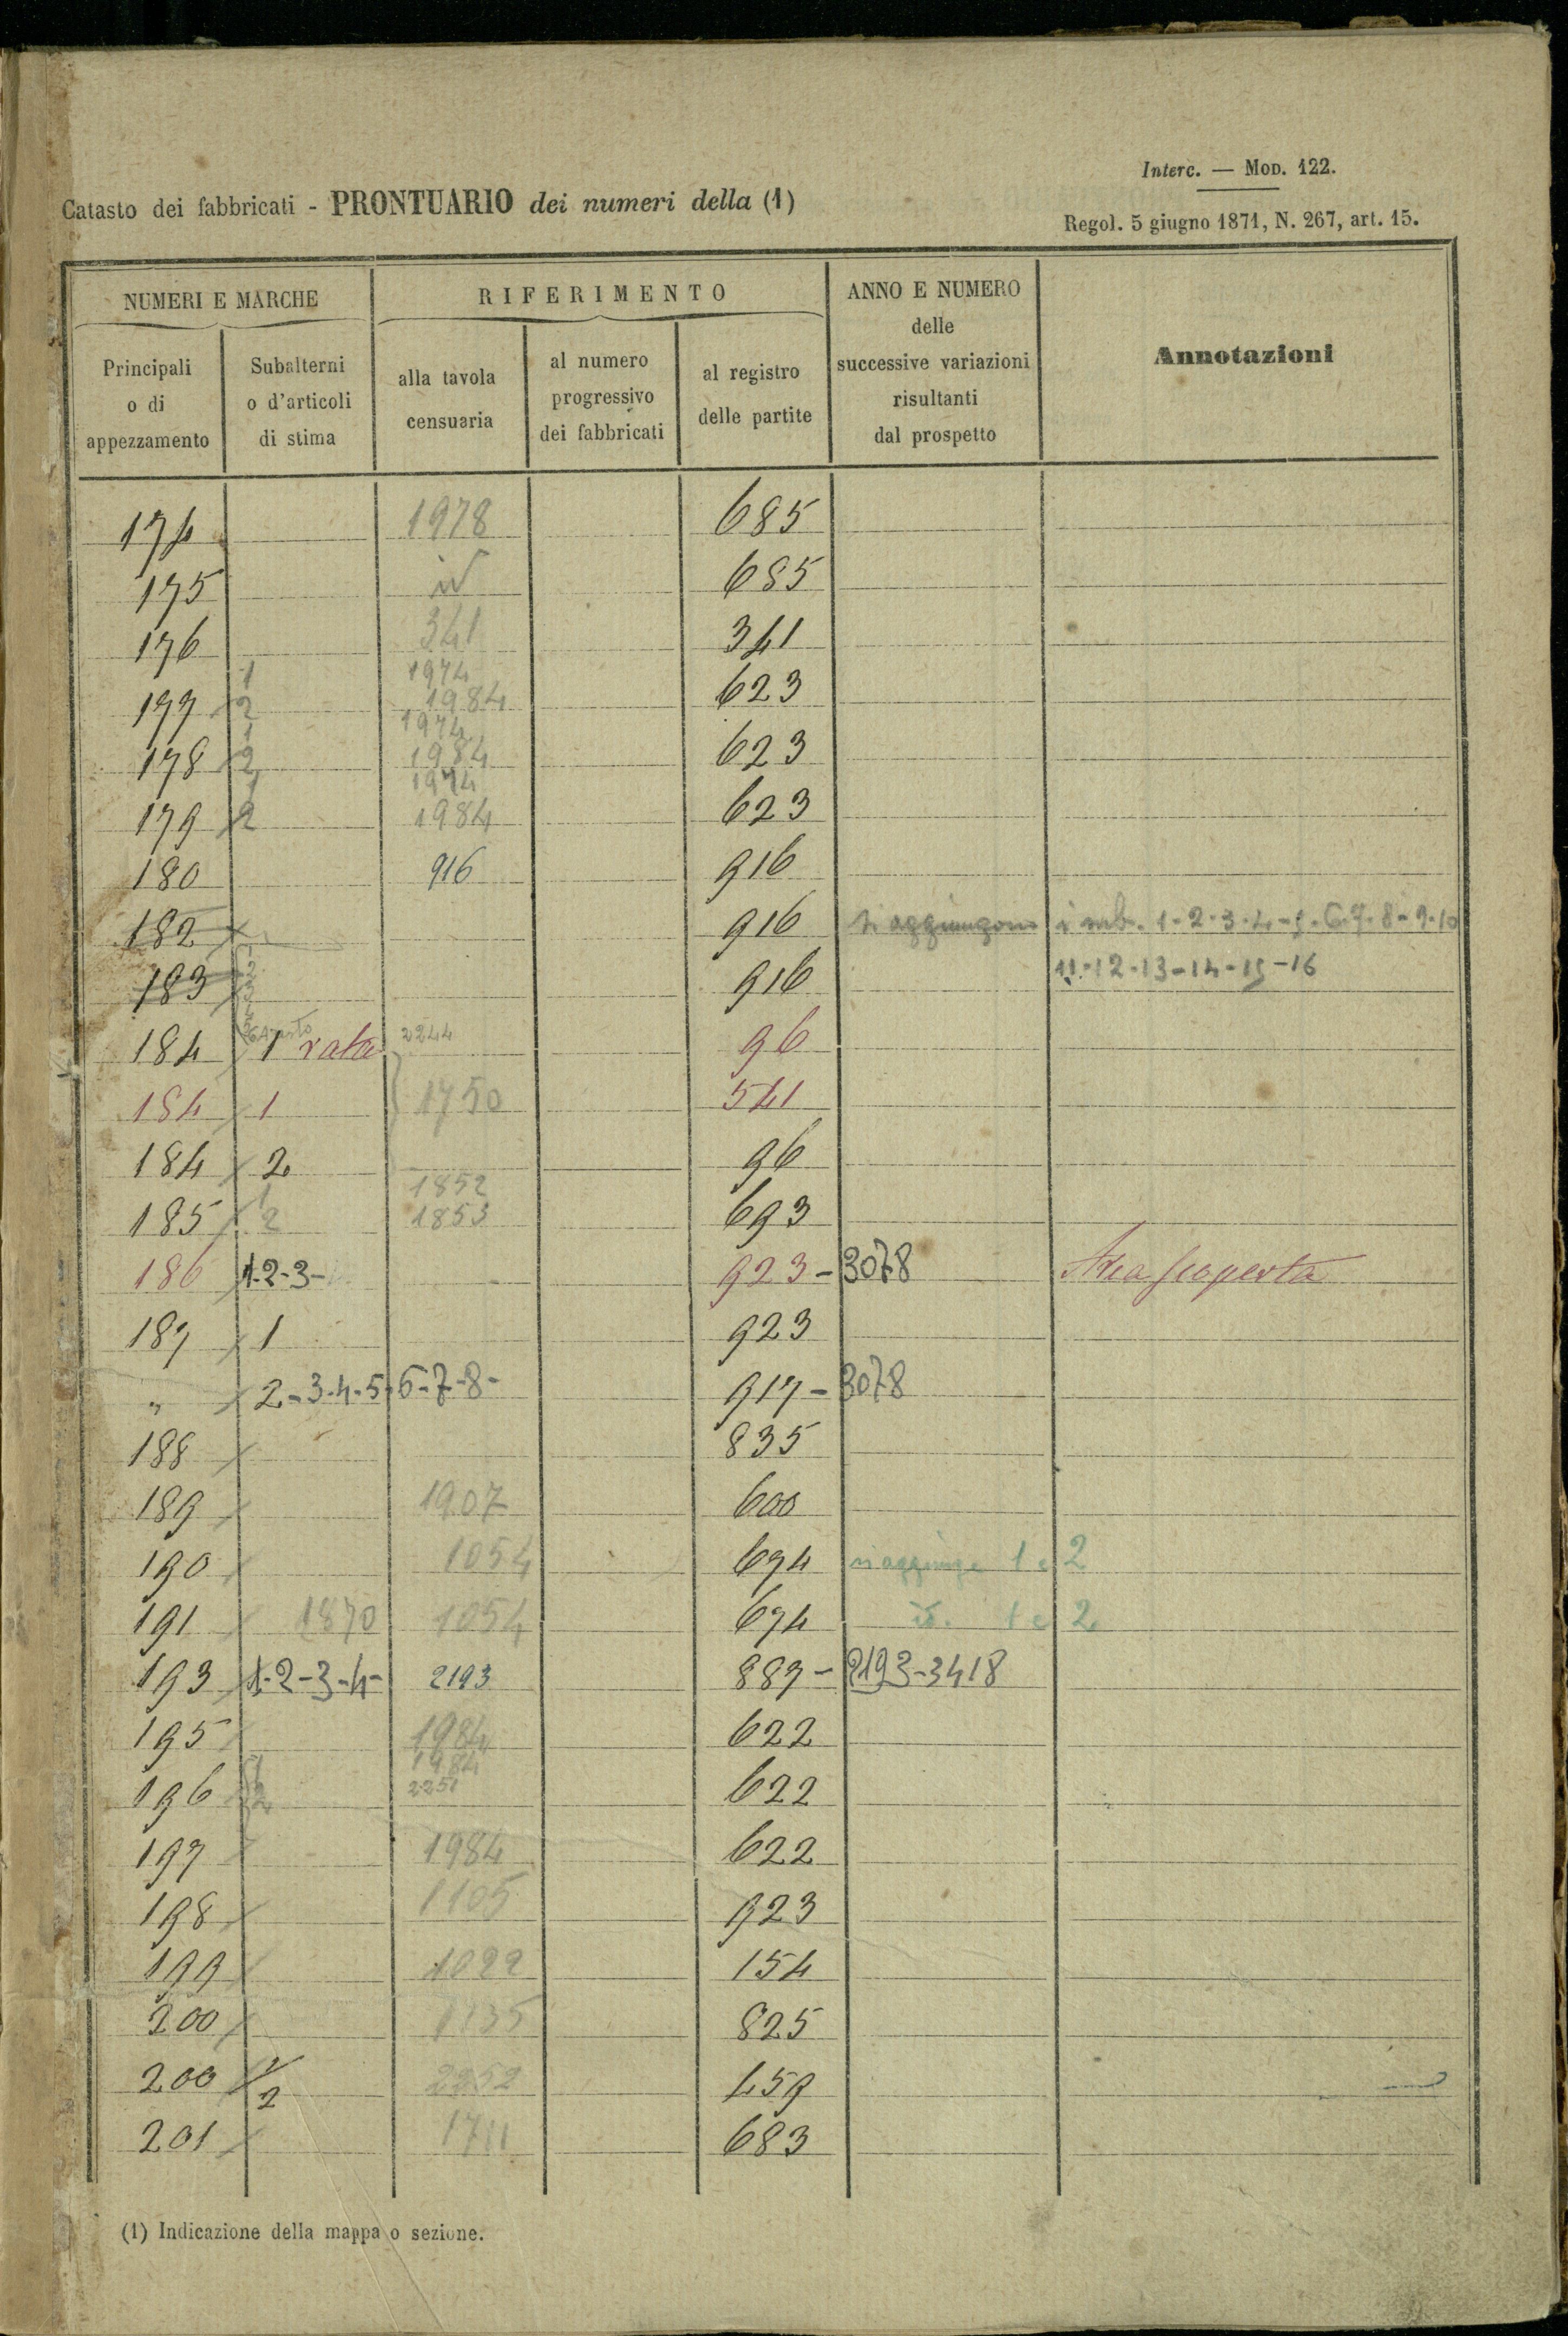 Interc. — Mod. 122.
Catasto dei fabbricati - PRONTUARIO dei numeri della (1)
Regol. 5 giugno 1871, N. 267, art. 15.
NUMERI E MARCHE
RIFERIMENTO
ANNO E NUMERO
delle
successive variazioni
risultanti
dal prospetto
Annotazioni
Principali
o di
appezzamento
Subalterni
o d'articoli
di stima
alla tavola
censuaria
al numero
progressivo
dei fabbricati
al registro
delle partite
174 1978 685
175 id 685
176 341 341
1 1974
177 2 1984 623
1 1974
178 2 1984 623
1 1974
179 2 1984 623
180 916 916
182 916 si aggiungono i sub. 1-2-3-4-5-6-7-8-9-10
183 916 11-12-13-14-15-16
184 1 rata 2244 96
184 1 1750 541
184 2 96
1 1852
185 2 1853 693
186 1-2-3- 923 - 3078 Area scoperta
187 1 923
" 2-3-4-5-6-7-8- 917 - 3078
188 835
189 1907 600
190 1054 694 si aggiunge 1 e 2
191 1870 1054 694 id. 1 e 2
193 1-2-3-4- 2193 887 - 2193-3418
195 1984 622
1 1984
196 2 2251 622
197 1984 622
198 1105 923
199 1022 154
200 1135 825
200 1/2 2252 459
201 1711 683
(1) Indicazione della mappa o sezione.